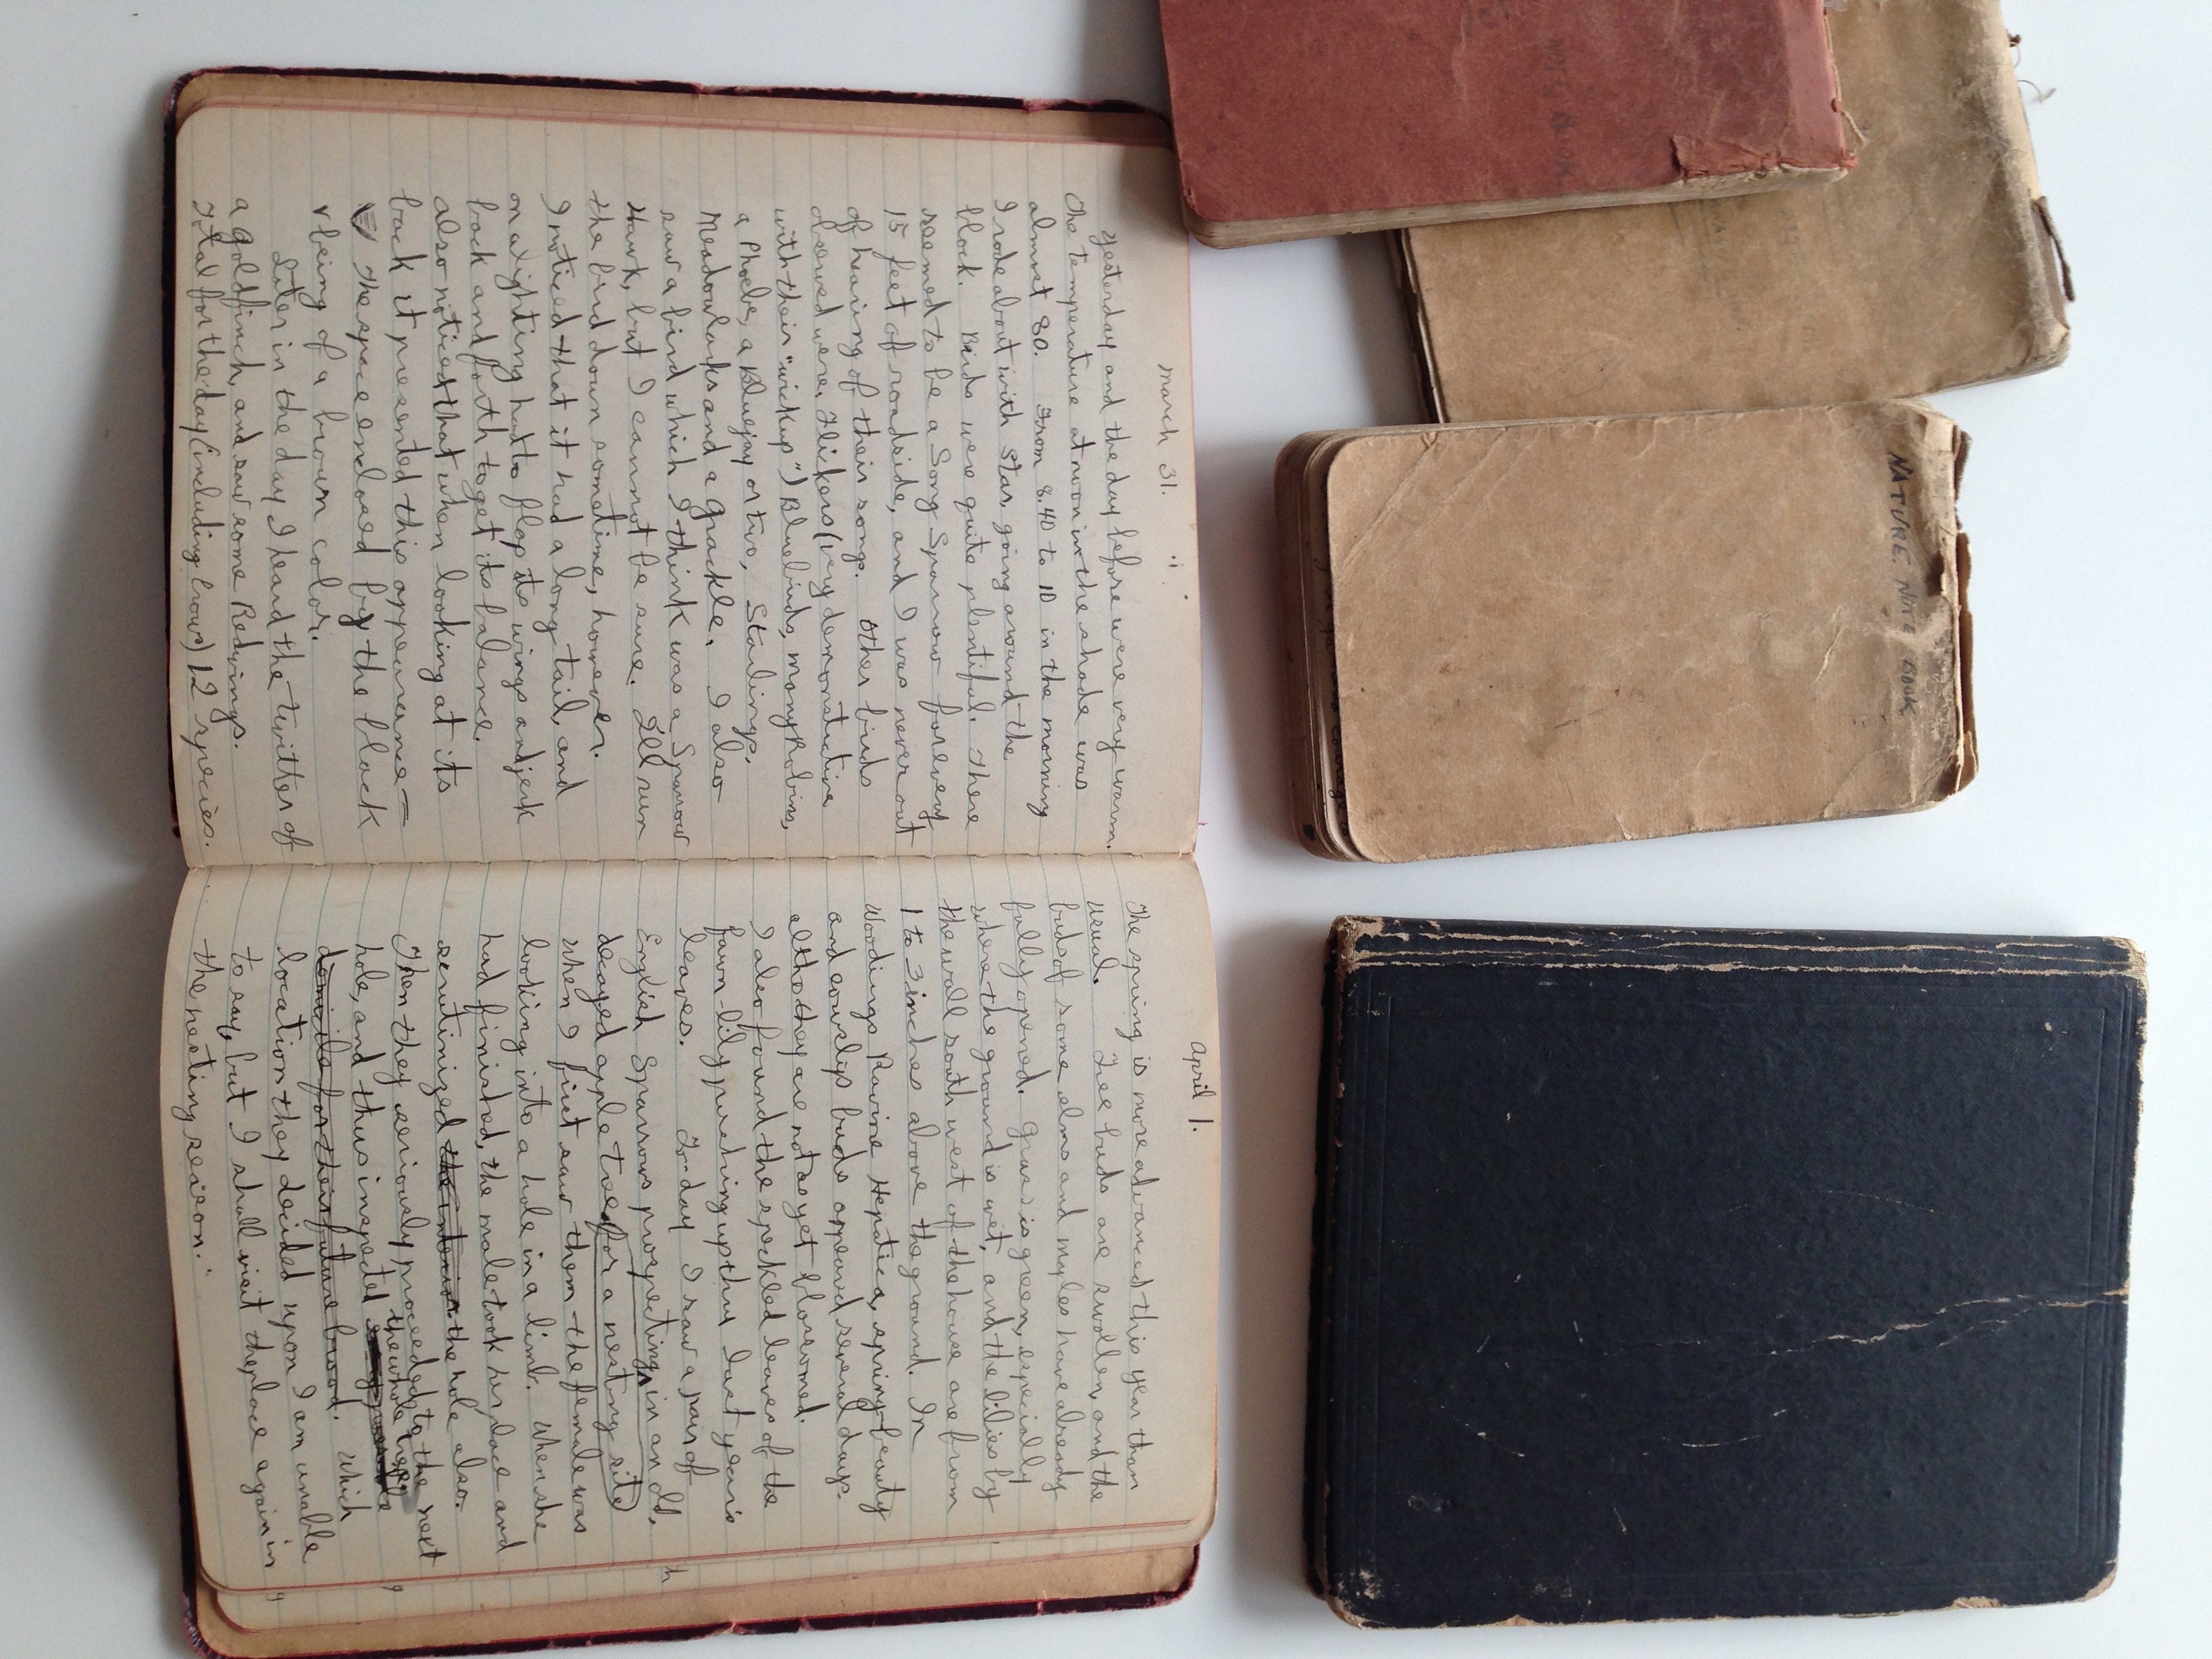 March 31.
Yesterday and the day before were very warm.
The temperature at noon in the shade was
almost 80. From 8.40 to 10 in the morning
I rode about with Star, going around the
block. Birds were quite plentiful. There
seemed to be a Song Sparrow for every
15 feet of roadside, and I was never out
of hearing of their songs. Other birds
observed were: Flickers (very demonstrative
with their "wickup") Bluebirds, many Robins,
a Phoebe, a Bluejay or two, Starlings,
Meadowlarks and a Grackle. I also
saw a bird which I think was a Sparrow
Hawk, but I cannot be sure. I'll run
the bird down sometime, however.
I noticed that it had a long tail, and
on alighting had to flap its wings and jerk
back and forth to get its balance.
also noticed that when looking at its
back it presented this appearance —
the space enclosed by the black
being of a brown color.
Later in the day I heard the twitter of
a goldfinch, and saw some Redwings.
Total for the day (including Crows) 12 species.
April 1.
The spring is more advanced this year than
usual. Tree buds are swollen, and the
buds of some elms and maples have already
fully opened. Grass is green, especially
where the ground is wet, and the lilies by
the wall south west of the house are from
1 to 3 inches above the ground. In
Woodings Ravine Hepatica, spring-beauty
and cowslip buds appeared several days.
altho they are not as yet blossomed.
I also found the speckled leaves of the
fawn-lily pushing up thru last year's
leaves. To-day I saw a pair of
English Sparrows prospecting in an old,
decayed apple tree for a nesting site
when I first saw them the female was
looking into a hole in a limb. When she
had finished, the male took his place and
scrutinized the interior the hole also.
Then they seriously proceeded to the next
the whole tree
hole, and thus inspected
domicile for their future brood. Which
location they decided upon I am unable
to say, but I shall visit the place again in
the nesting season.
NATURE NOTE BOOK